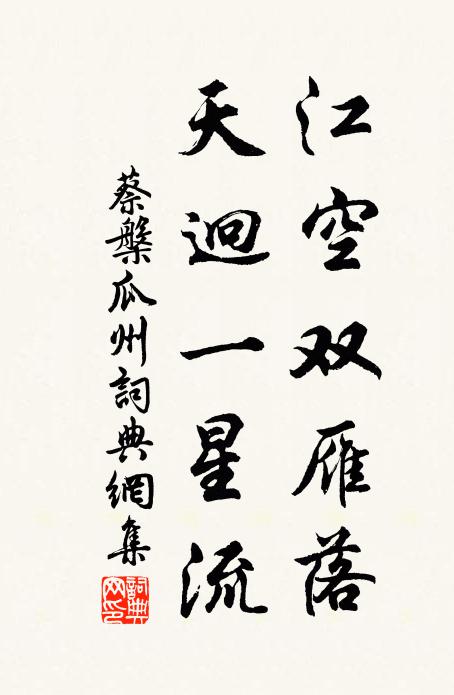 江空双雁落
天迥一星流
蔡槃瓜州詞典網集
詞典
网印